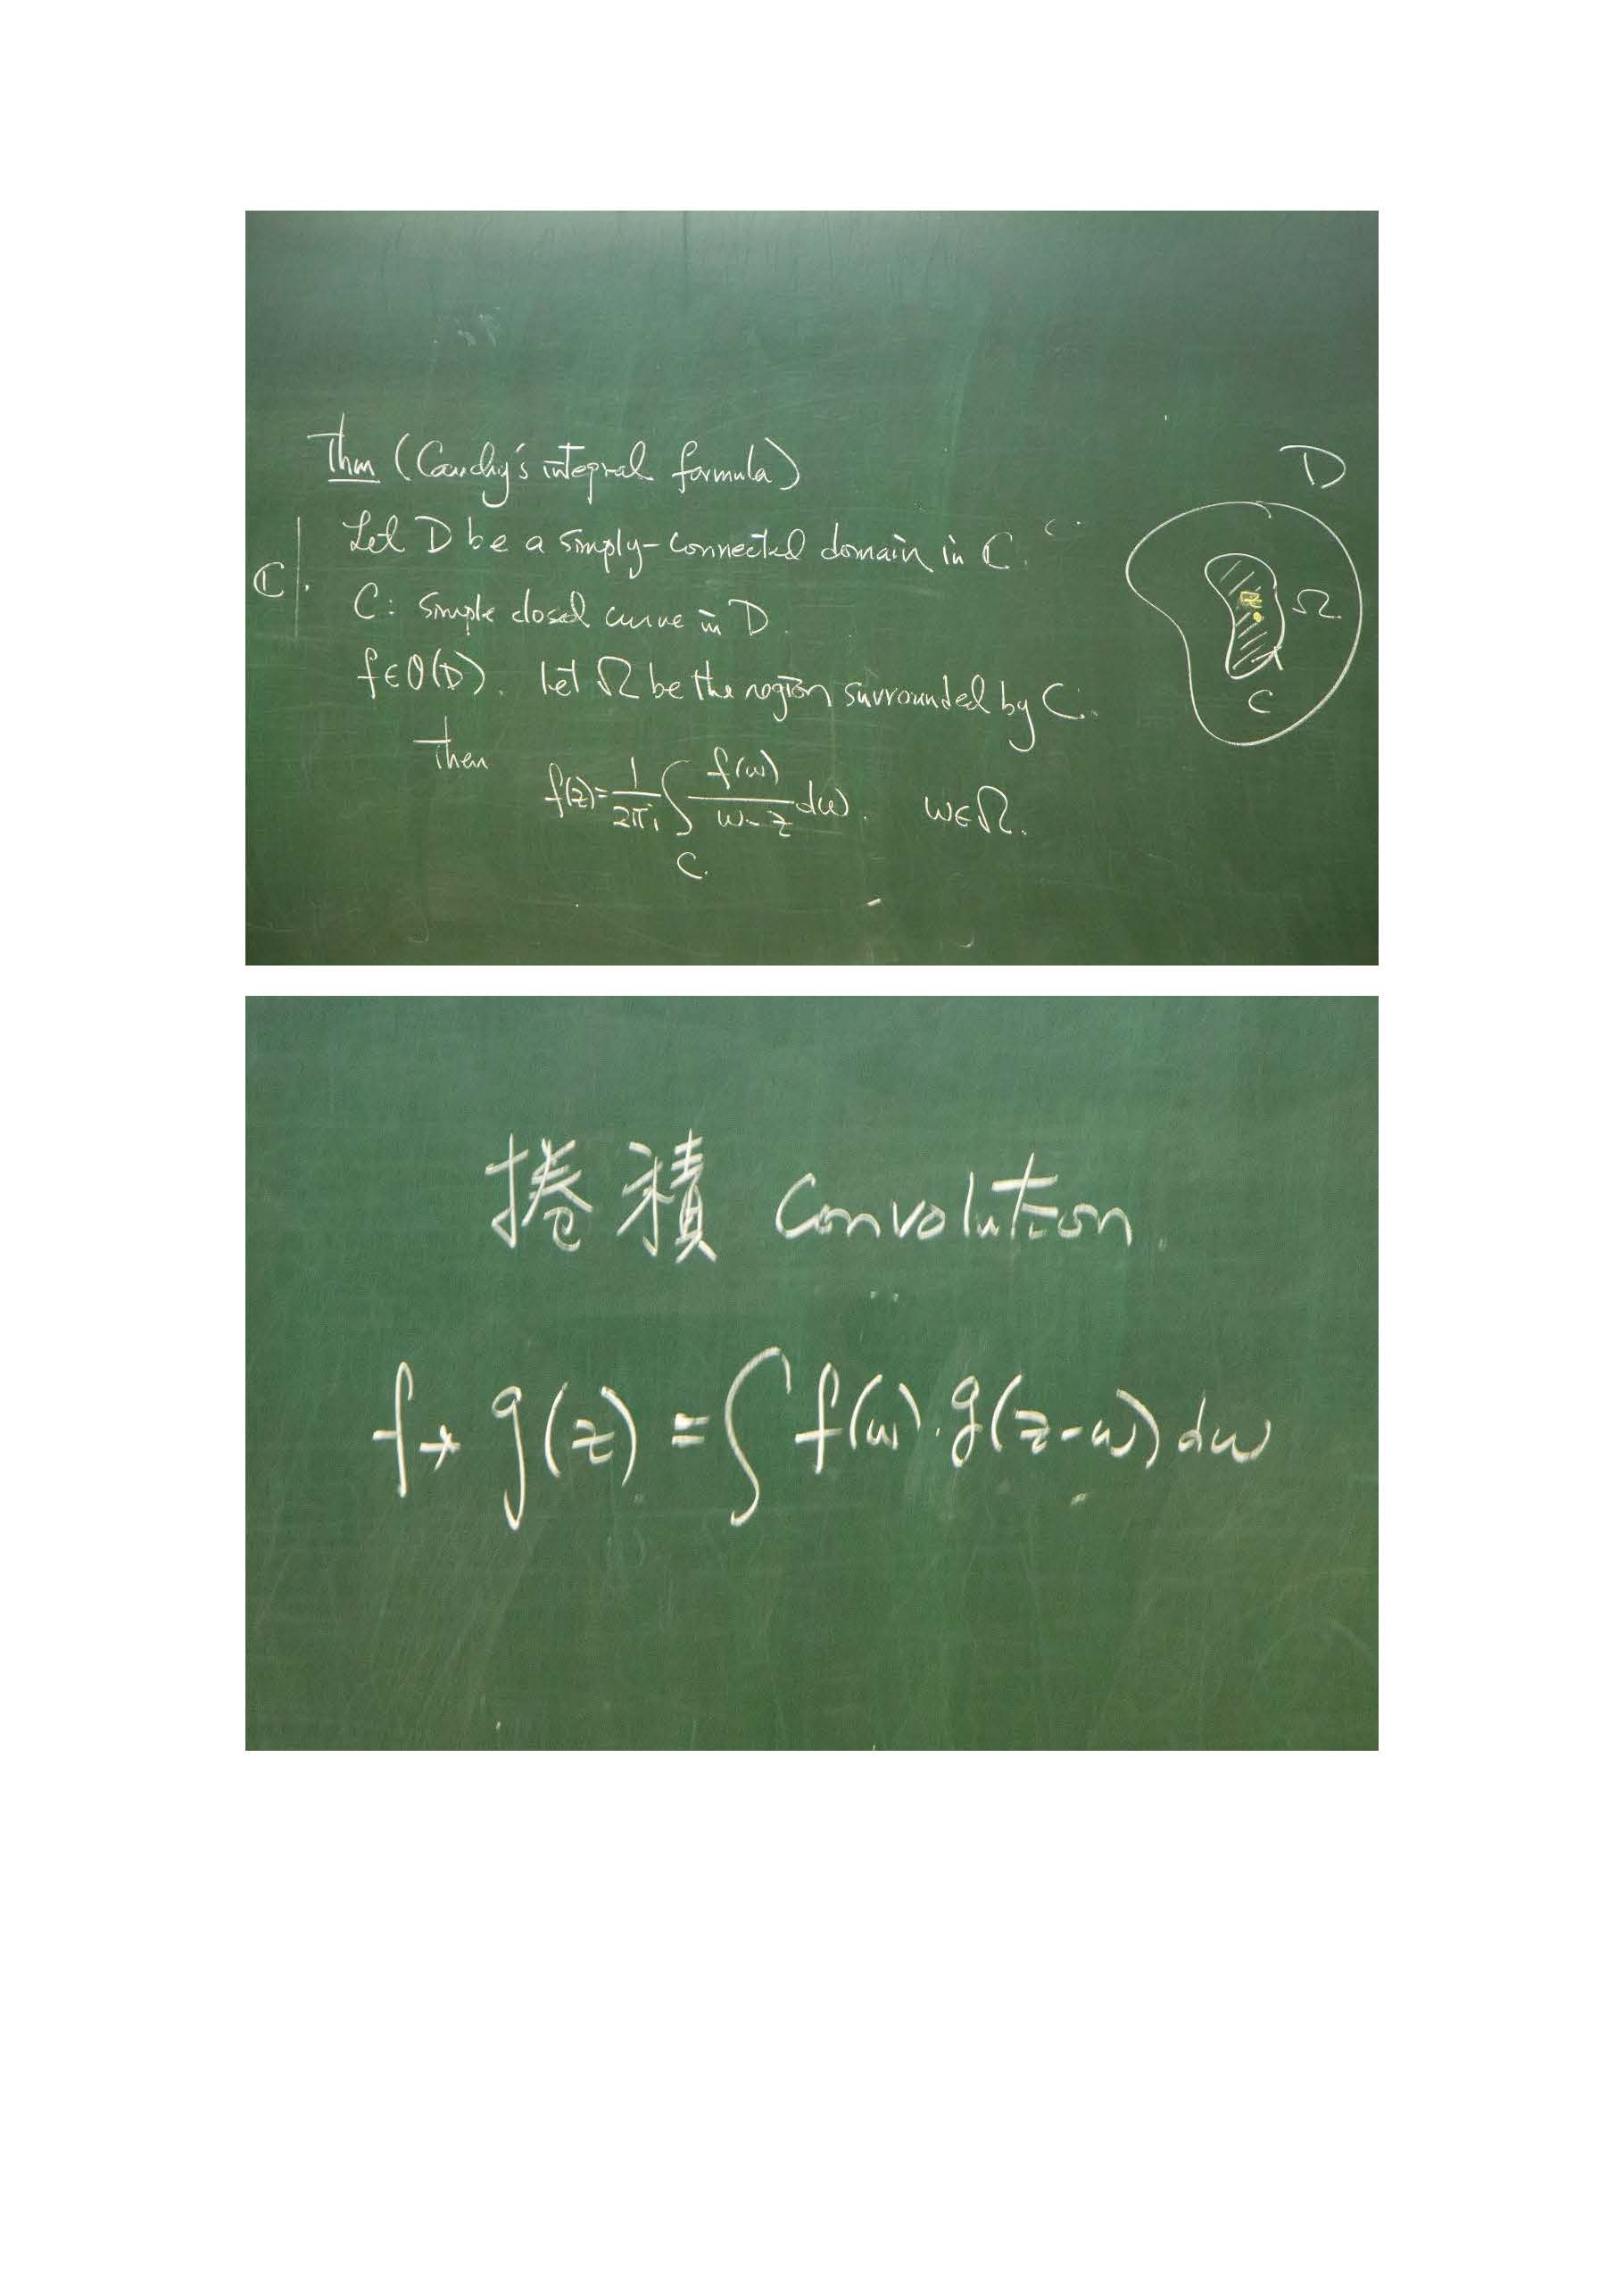 Thm (Cauchy's integral formula)
Let D be a simply-connected domain in ℂ.
ℂ.
C: simple closed curve in D.
f∈O(D). let Ω be the region surrounded by C.
Then f(z)=1/2πi ∫_C f(w)/w-z dw. w∈Ω.
D
z
Ω
C
捲積 Convolution.
f * g(z) = ∫ f(w)·g(z-w)dw